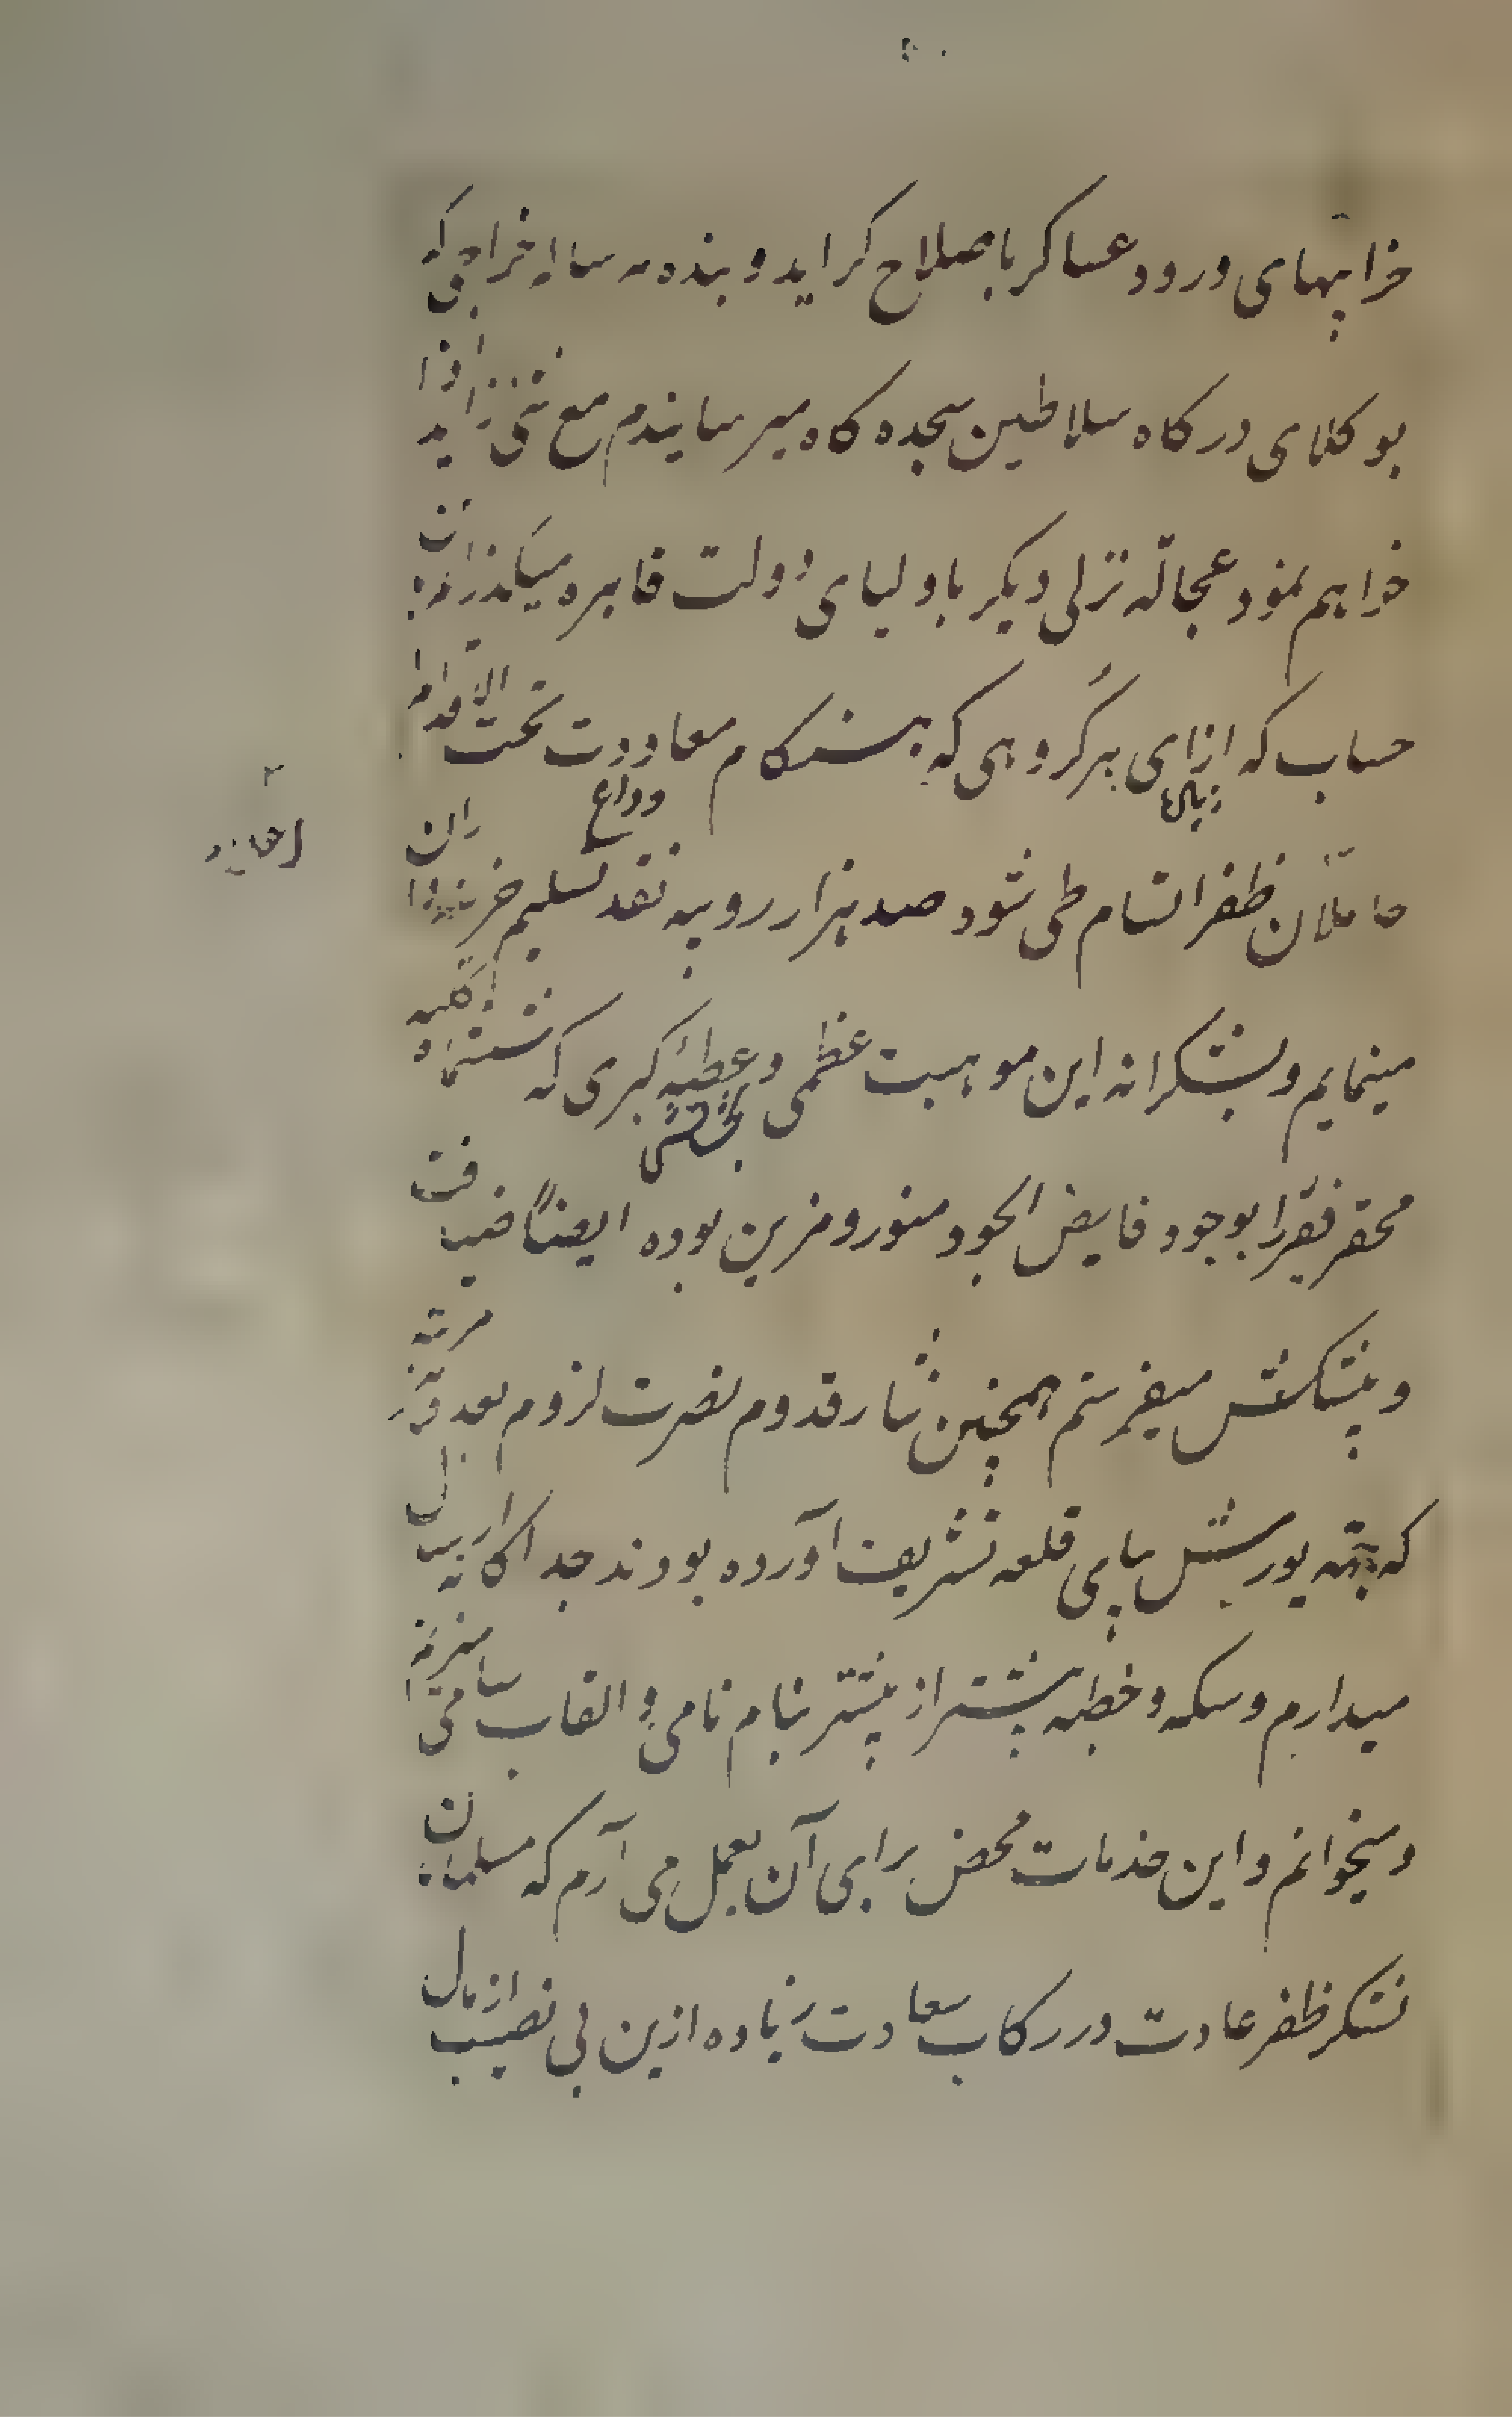 خرابیهای ورود عساکر باصلاح کراید و بنده سه ساله خراجی که
بوکلای درکاه سلاطین سجده کاه میرسایندم مع شی زاید ادا
خواهم نمود عجالة نزلی دیکر باولیای دولت قاهره میکذرانم
حساب که ازای هر کروهی که بهنکام معاودت تحت الاقدام
وداع
حاملان ظفر التسام طی شود صد هزار روپیه نقد تسلیم خزینه داران
مینمایم و بشکرانه این موهبت عظمی و عطیهٔ کبری که
بخشش
محقر فقیر را بوجود فایض الجود منور و مزین بوده ایضاً ضیافت
و پیشکش میفرستم همچنین نثار قدوم نصرت لزوم بعد هر مرتبه
که بجهته یورش بپای قلعه تشریف آورده بودند جداکانه ارسال
میدارم و سکه و خطبه بیشتر از پیشتر بنام نامی و القاب سامی
و میخوانم و این خدمات محض برای آن بعمل می آرم که مسلمانان
لشکر ظفر عادت در رکاب سعادت زیاده ازین بی نصیب از مال